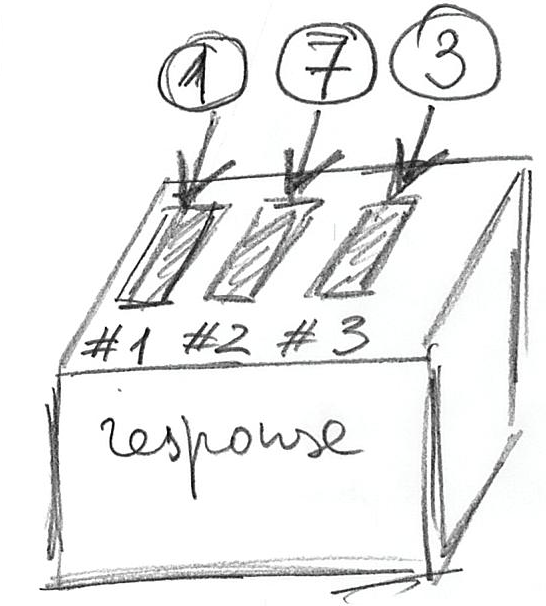 1 7 3
#1 #2 #3
response